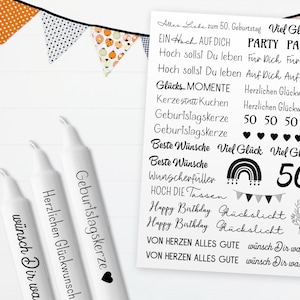 Alles Liebe zum 50. Geburtstag
Viel Gl
EIN Hoch AUF DICH
PARTY PA
Hoch sollst Du leben
Für Dich Für
Hoch sollst Du leben
Auf Dich Auf D
Glücks. MOMENTE
Herzlichen Glück
Kerze statt Kuchen
Herzlichen Glückwun
Geburtstagskerze
50 50 50 50
Geburtstagskerze
Beste Wünsche Viel Glück Viel Glü
Beste Wünsche
Wunscherfüller
50
HOCH DIE Tassen
Happy Birthday Glückslicht
Happy Birthday Glückslicht
VON HERZEN ALLES GUTE wünsch Dir wa
VON HERZEN ALLES GUTE wünsch Dir wa
wünsch Dir was
Herzlichen Glückwunsch
Geburtstagskerze